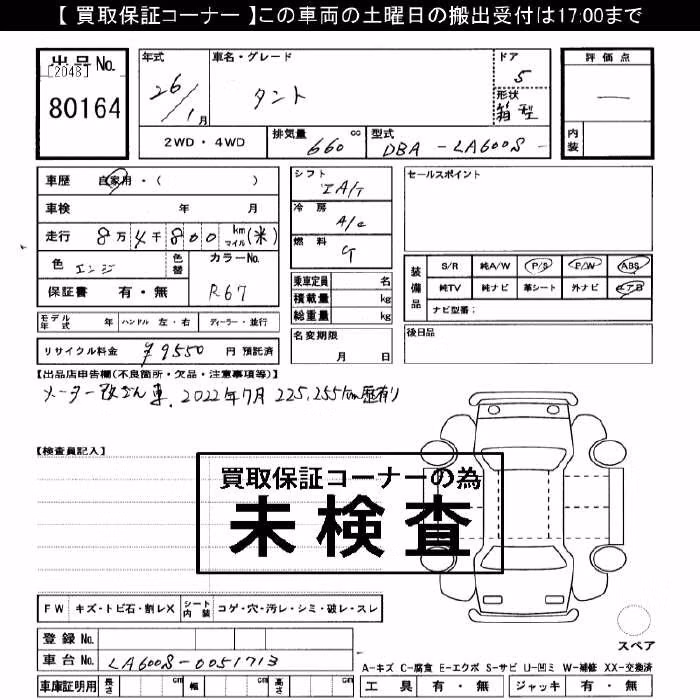 【 買取保証コーナー 】この車両の土曜日の搬出受付は17:00まで
出品No.
[2048]
80164
年式
26/1月
車名・グレード
タント
ドア
5
形状
箱型
評価点
—
内装
2WD・4WD
排気量 660 cc
型式 DBA-LA600S-
車歴 自家用・( )
車検 年 月
走行 8万4千800 km マイル (米)
色 エンジ
色替
カラーNo.
R67
保証書 有・無
シフト
IA/T
冷房
A/C
燃料
G
乗車定員 名
積載量 kg
総重量 kg
名変期限
月 日
セールスポイント
装備品
S/R 純A/W P/S P/W ABS
純TV 純ナビ 革シート 外ナビ エアB
ナビ型番:
後日品
モデル年式 年 ハンドル 左・右 ディーラー・並行
リサイクル料金 ¥9550 円 預託済
【出品店申告欄(不良箇所・欠品・注意事項等)】
メーター改ざん車. 2022年7月 225,255km歴有り
【検査員記入】
買取保証コーナーの為
未検査
FW キズ・トビ石・割レX シート内装 コゲ・穴・汚レ・シミ・破レ・スレ
登録No.
車台No. LA600S-0051713
車庫証明用 長さ cm 幅 cm 高さ cm
スペア
A-キズ C-腐食 E-エクボ S-サビ U-凹ミ W-補修 XX-交換済
工具 有・無 ジャッキ 有・無